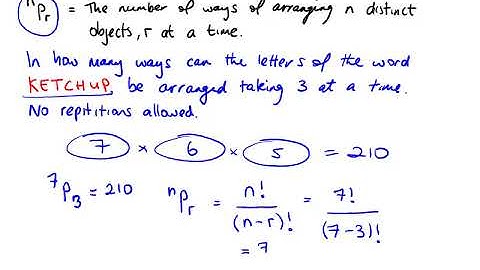 nPr = The number of ways of arranging n distinct
objects, r at a time.
In how many ways can the letters of the word
KETCHUP, be arranged taking 3 at a time.
No repititions allowed.
7 × 6 × 5 = 210
7P3 = 210 nPr = n!/(n-r)! = 7!/(7-3)!
= 7